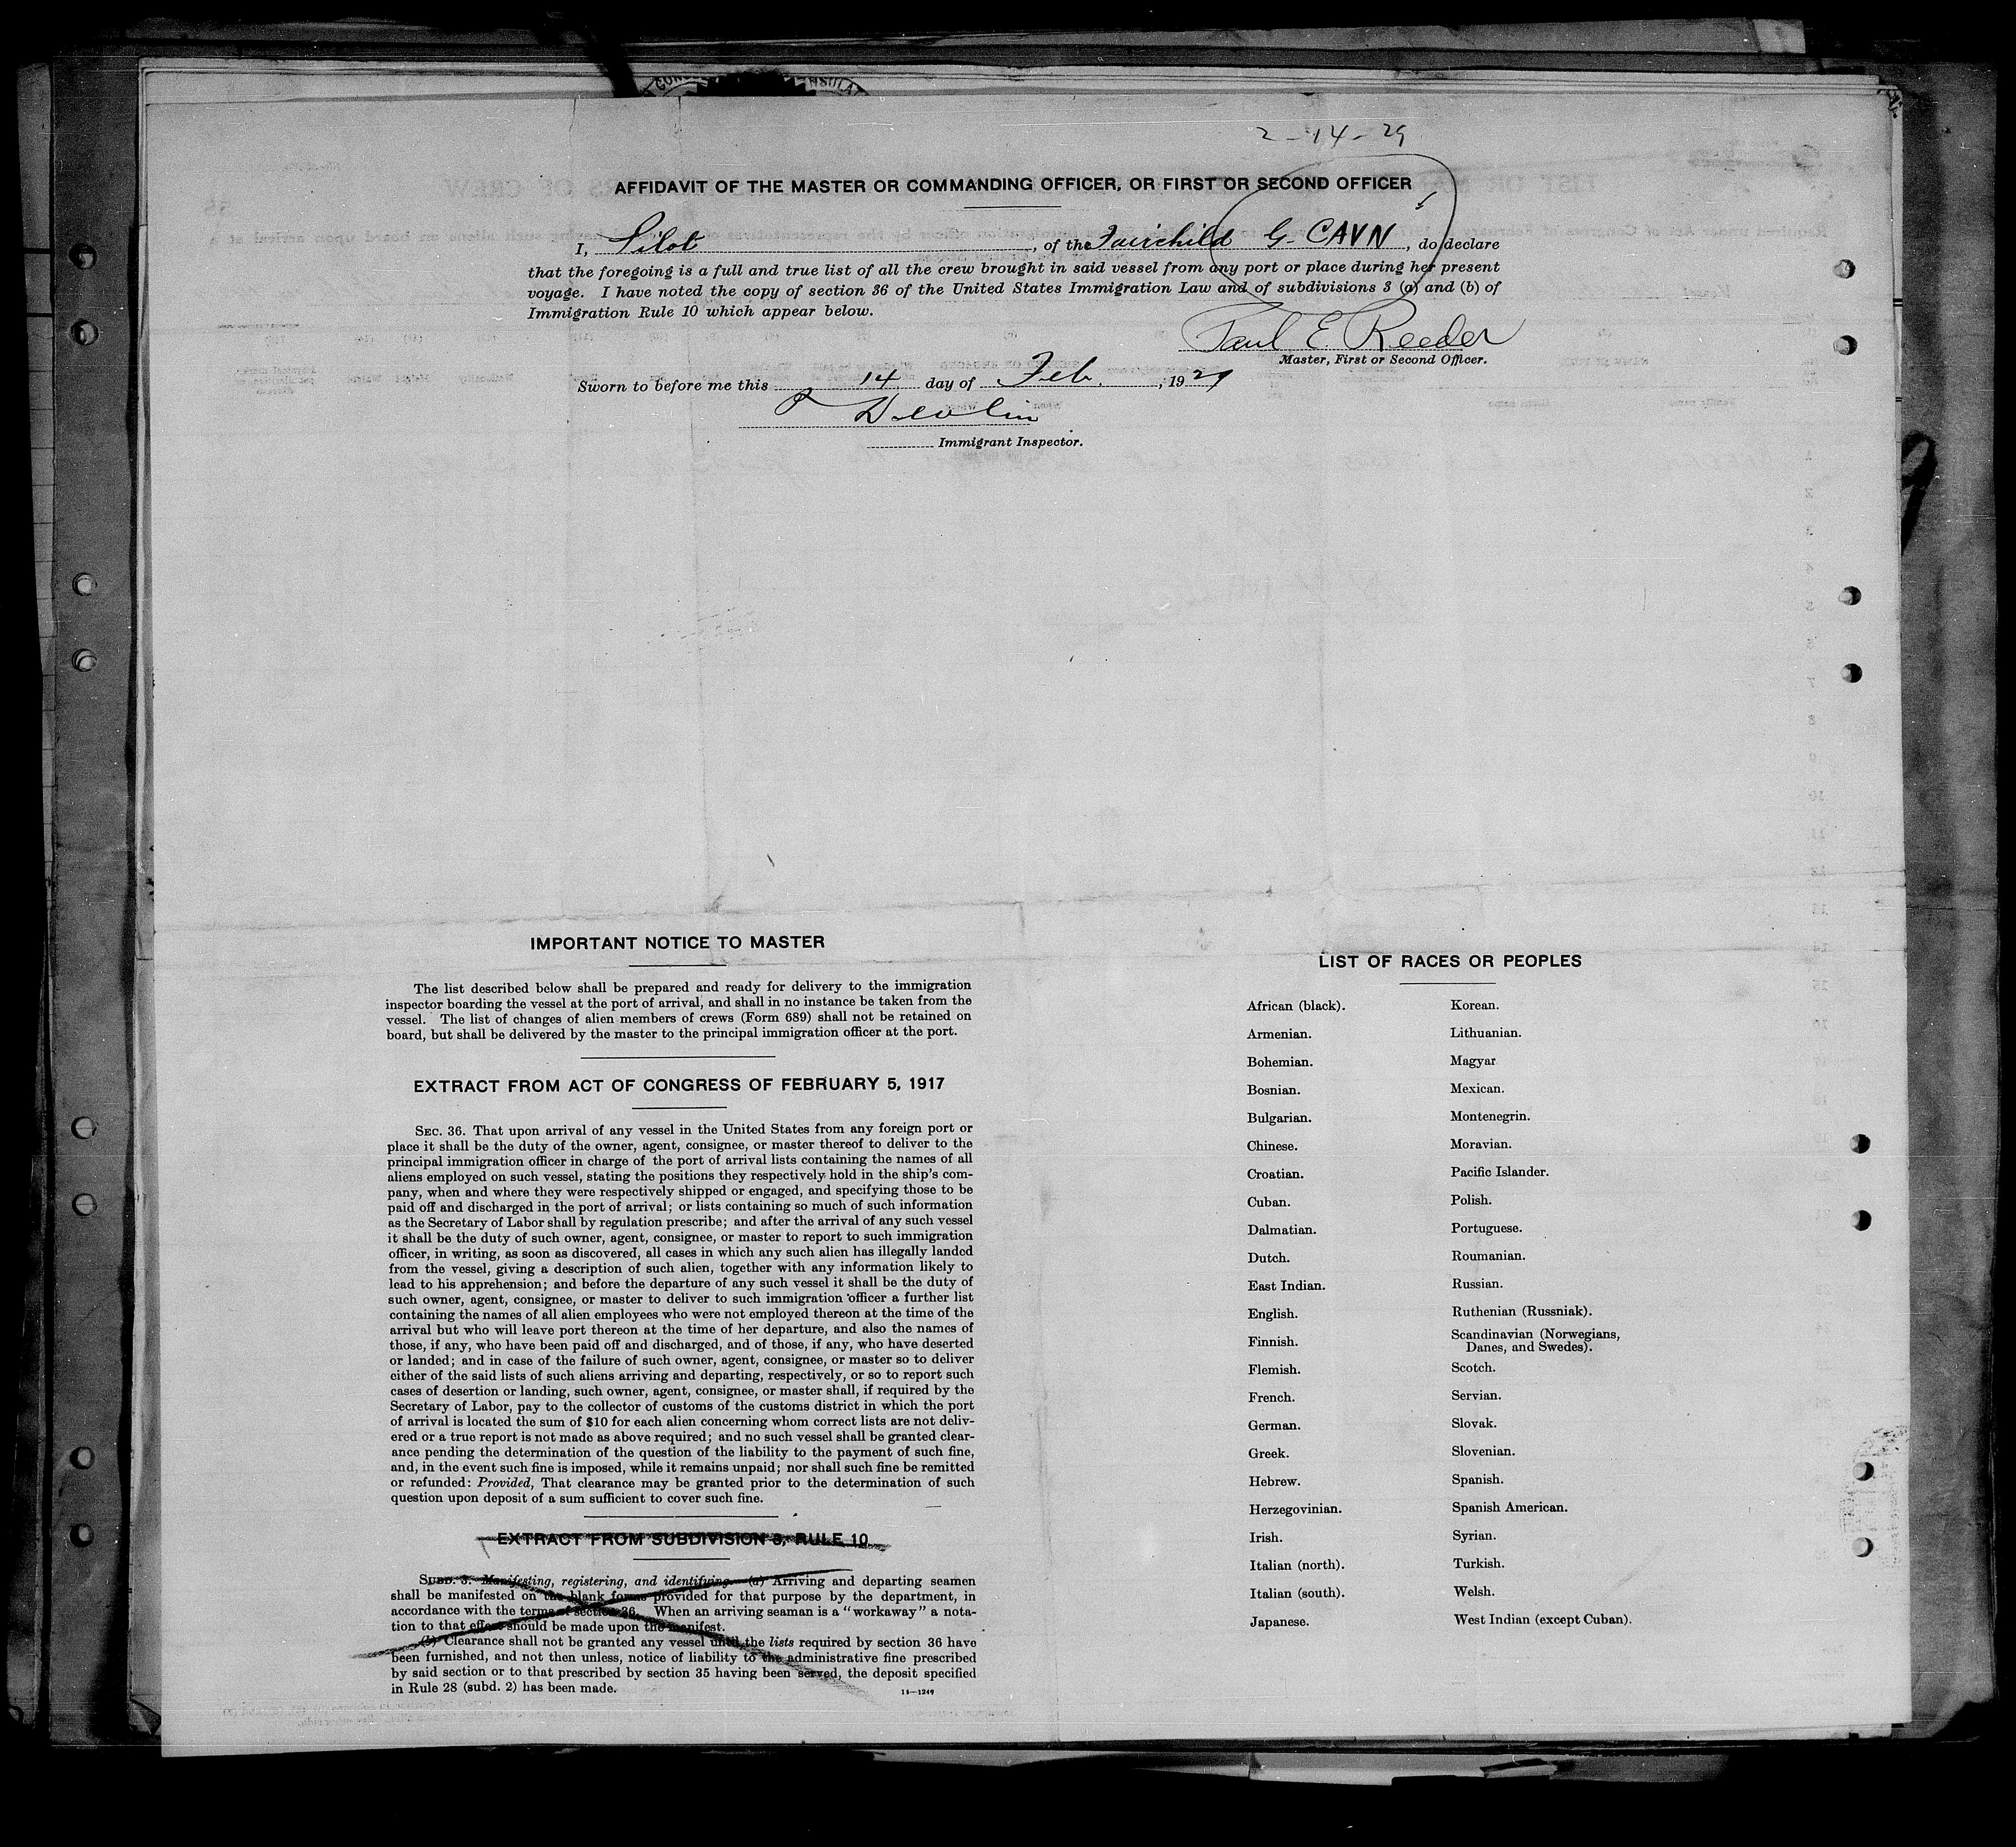 2-14-29
AFFIDAVIT OF THE MASTER OR COMMANDING OFFICER, OR FIRST OR SECOND OFFICER
I, Pilot, of the Fairchild G-CAVN, do declare
that the foregoing is a full and true list of all the crew brought in said vessel from any port or place during her present
voyage. I have noted the copy of section 36 of the United States Immigration Law and of subdivisions 3 (a) and (b) of
Immigration Rule 10 which appear below.
Paul E. Reeder
Master, First or Second Officer.
Sworn to before me this 14 day of Feb., 1929
P Devlin
Immigrant Inspector.
IMPORTANT NOTICE TO MASTER
The list described below shall be prepared and ready for delivery to the immigration
inspector boarding the vessel at the port of arrival, and shall in no instance be taken from the
vessel. The list of changes of alien members of crews (Form 689) shall not be retained on
board, but shall be delivered by the master to the principal immigration officer at the port.
EXTRACT FROM ACT OF CONGRESS OF FEBRUARY 5, 1917
SEC. 36. That upon arrival of any vessel in the United States from any foreign port or
place it shall be the duty of the owner, agent, consignee, or master thereof to deliver to the
principal immigration officer in charge of the port of arrival lists containing the names of all
aliens employed on such vessel, stating the positions they respectively hold in the ship's com-
pany, when and where they were respectively shipped or engaged, and specifying those to be
paid off and discharged in the port of arrival; or lists containing so much of such information
as the Secretary of Labor shall by regulation prescribe; and after the arrival of any such vessel
it shall be the duty of such owner, agent, consignee, or master to report to such immigration
officer, in writing, as soon as discovered, all cases in which any such alien has illegally landed
from the vessel, giving a description of such alien, together with any information likely to
lead to his apprehension; and before the departure of any such vessel it shall be the duty of
such owner, agent, consignee, or master to deliver to such immigration officer a further list
containing the names of all alien employees who were not employed thereon at the time of the
arrival but who will leave port thereon at the time of her departure, and also the names of
those, if any, who have been paid off and discharged, and of those, if any, who have deserted
or landed; and in case of the failure of such owner, agent, consignee, or master so to deliver
either of the said lists of such aliens arriving and departing, respectively, or so to report such
cases of desertion or landing, such owner, agent, consignee, or master shall, if required by the
Secretary of Labor, pay to the collector of customs of the customs district in which the port
of arrival is located the sum of $10 for each alien concerning whom correct lists are not deliv-
ered or a true report is not made as above required; and no such vessel shall be granted clear-
ance pending the determination of the question of the liability to the payment of such fine,
and, in the event such fine is imposed, while it remains unpaid; nor shall such fine be remitted
or refunded: Provided, That clearance may be granted prior to the determination of such
question upon deposit of a sum sufficient to cover such fine.
EXTRACT FROM SUBDIVISION 3, RULE 10
SUBD. 3. Manifesting, registering, and identifying. (a) Arriving and departing seamen
shall be manifested on the blank forms provided for that purpose by the department, in
accordance with the terms of section 36. When an arriving seaman is a "workaway" a nota-
tion to that effect should be made upon the manifest.
(b) Clearance shall not be granted any vessel until the lists required by section 36 have
been furnished, and not then unless, notice of liability to the administrative fine prescribed
by said section or to that prescribed by section 35 having been served, the deposit specified
in Rule 28 (subd. 2) has been made.
14—1240
LIST OF RACES OR PEOPLES
African (black).
Armenian.
Bohemian.
Bosnian.
Bulgarian.
Chinese.
Croatian.
Cuban.
Dalmatian.
Dutch.
East Indian.
English.
Finnish.
Flemish.
French.
German.
Greek.
Hebrew.
Herzegovinian.
Irish.
Italian (north).
Italian (south).
Japanese.
Korean.
Lithuanian.
Magyar
Mexican.
Montenegrin.
Moravian.
Pacific Islander.
Polish.
Portuguese.
Roumanian.
Russian.
Ruthenian (Russniak).
Scandinavian (Norwegians,
Danes, and Swedes).
Scotch.
Servian.
Slovak.
Slovenian.
Spanish.
Spanish American.
Syrian.
Turkish.
Welsh.
West Indian (except Cuban).